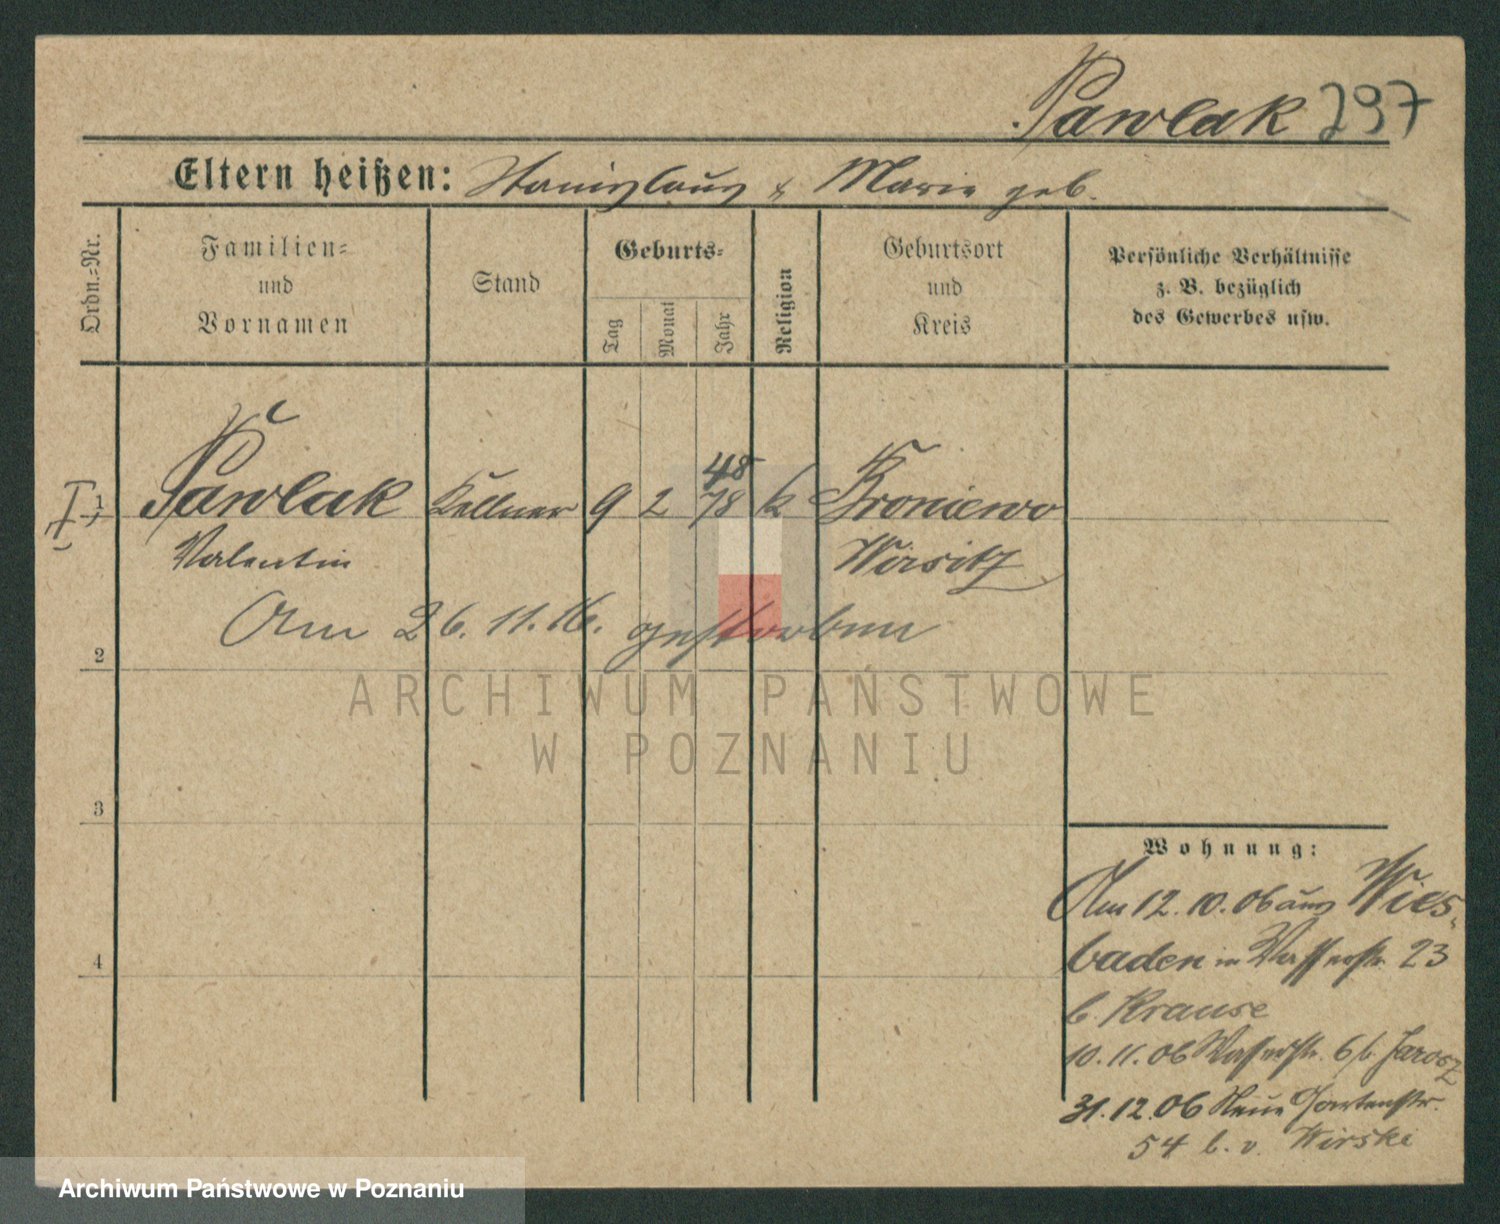 Pawlak 297
Eltern heißen: Stanislaus & Marie geb.
Ordn.=Nr.
Familien=
und
Vornamen
Stand
Geburts=
Tag
Monat
Jahr
Religion
Geburtsort
und
Kreis
Persönliche Verhältnisse
z. B. bezüglich
des Gewerbes usw.
48
1 Pawlak Kellner 9 2 78 k Broniewo
Valentin Wirsitz
Am 26. 11. 16. gestorben
2
ARCHIWUM PAŃSTWOWE
W POZNANIU
3
Wohnung:
Am 12. 10. 06 aus Wies-
baden in Wasserstr. 23
4
b. Krause
10. 11. 06 Wasserstr. 6 b. Jarosz
31. 12. 06 Neue Gartenstr.
54 b. v. Wirski
Archiwum Państwowe w Poznaniu